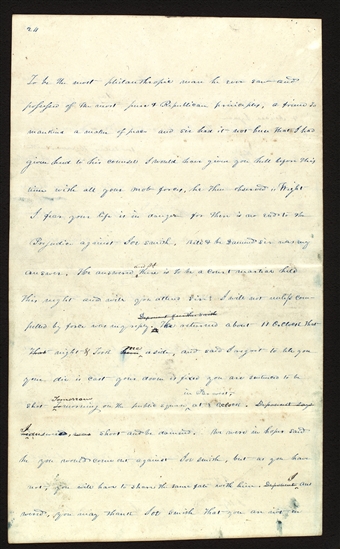 24
To be the most philanthropic man he ever saw and
possessed of the most pure & Republican principles, a friend to
mankind a maker of peace and sir had it not been that I had
given heed to his counsels I would have given you hell before this
time with all your mob forces, he then observed. Wight
I fear your life is in danger for there is no end to the
Prejudice against Joe smith. Kill & be damned sir was my
answer. He answered there is to be a court martial held
this night and will you attend Sir? I will not unless com-
pelled by force was my reply. He returned about 11 O clock that
that night & took me aside, and said I regret to tell you
your die is cast your doom is fixed you are sentenced to be
shot Tomorrow morning on the public square in at 8 Oclock.
I answered, shoot and be damned. We were in hopes said
he you would come out against Joe smith, but as you have
not, you will have to share the same fate with him. I ans
wered, you may thank Joe Smith that you are not in